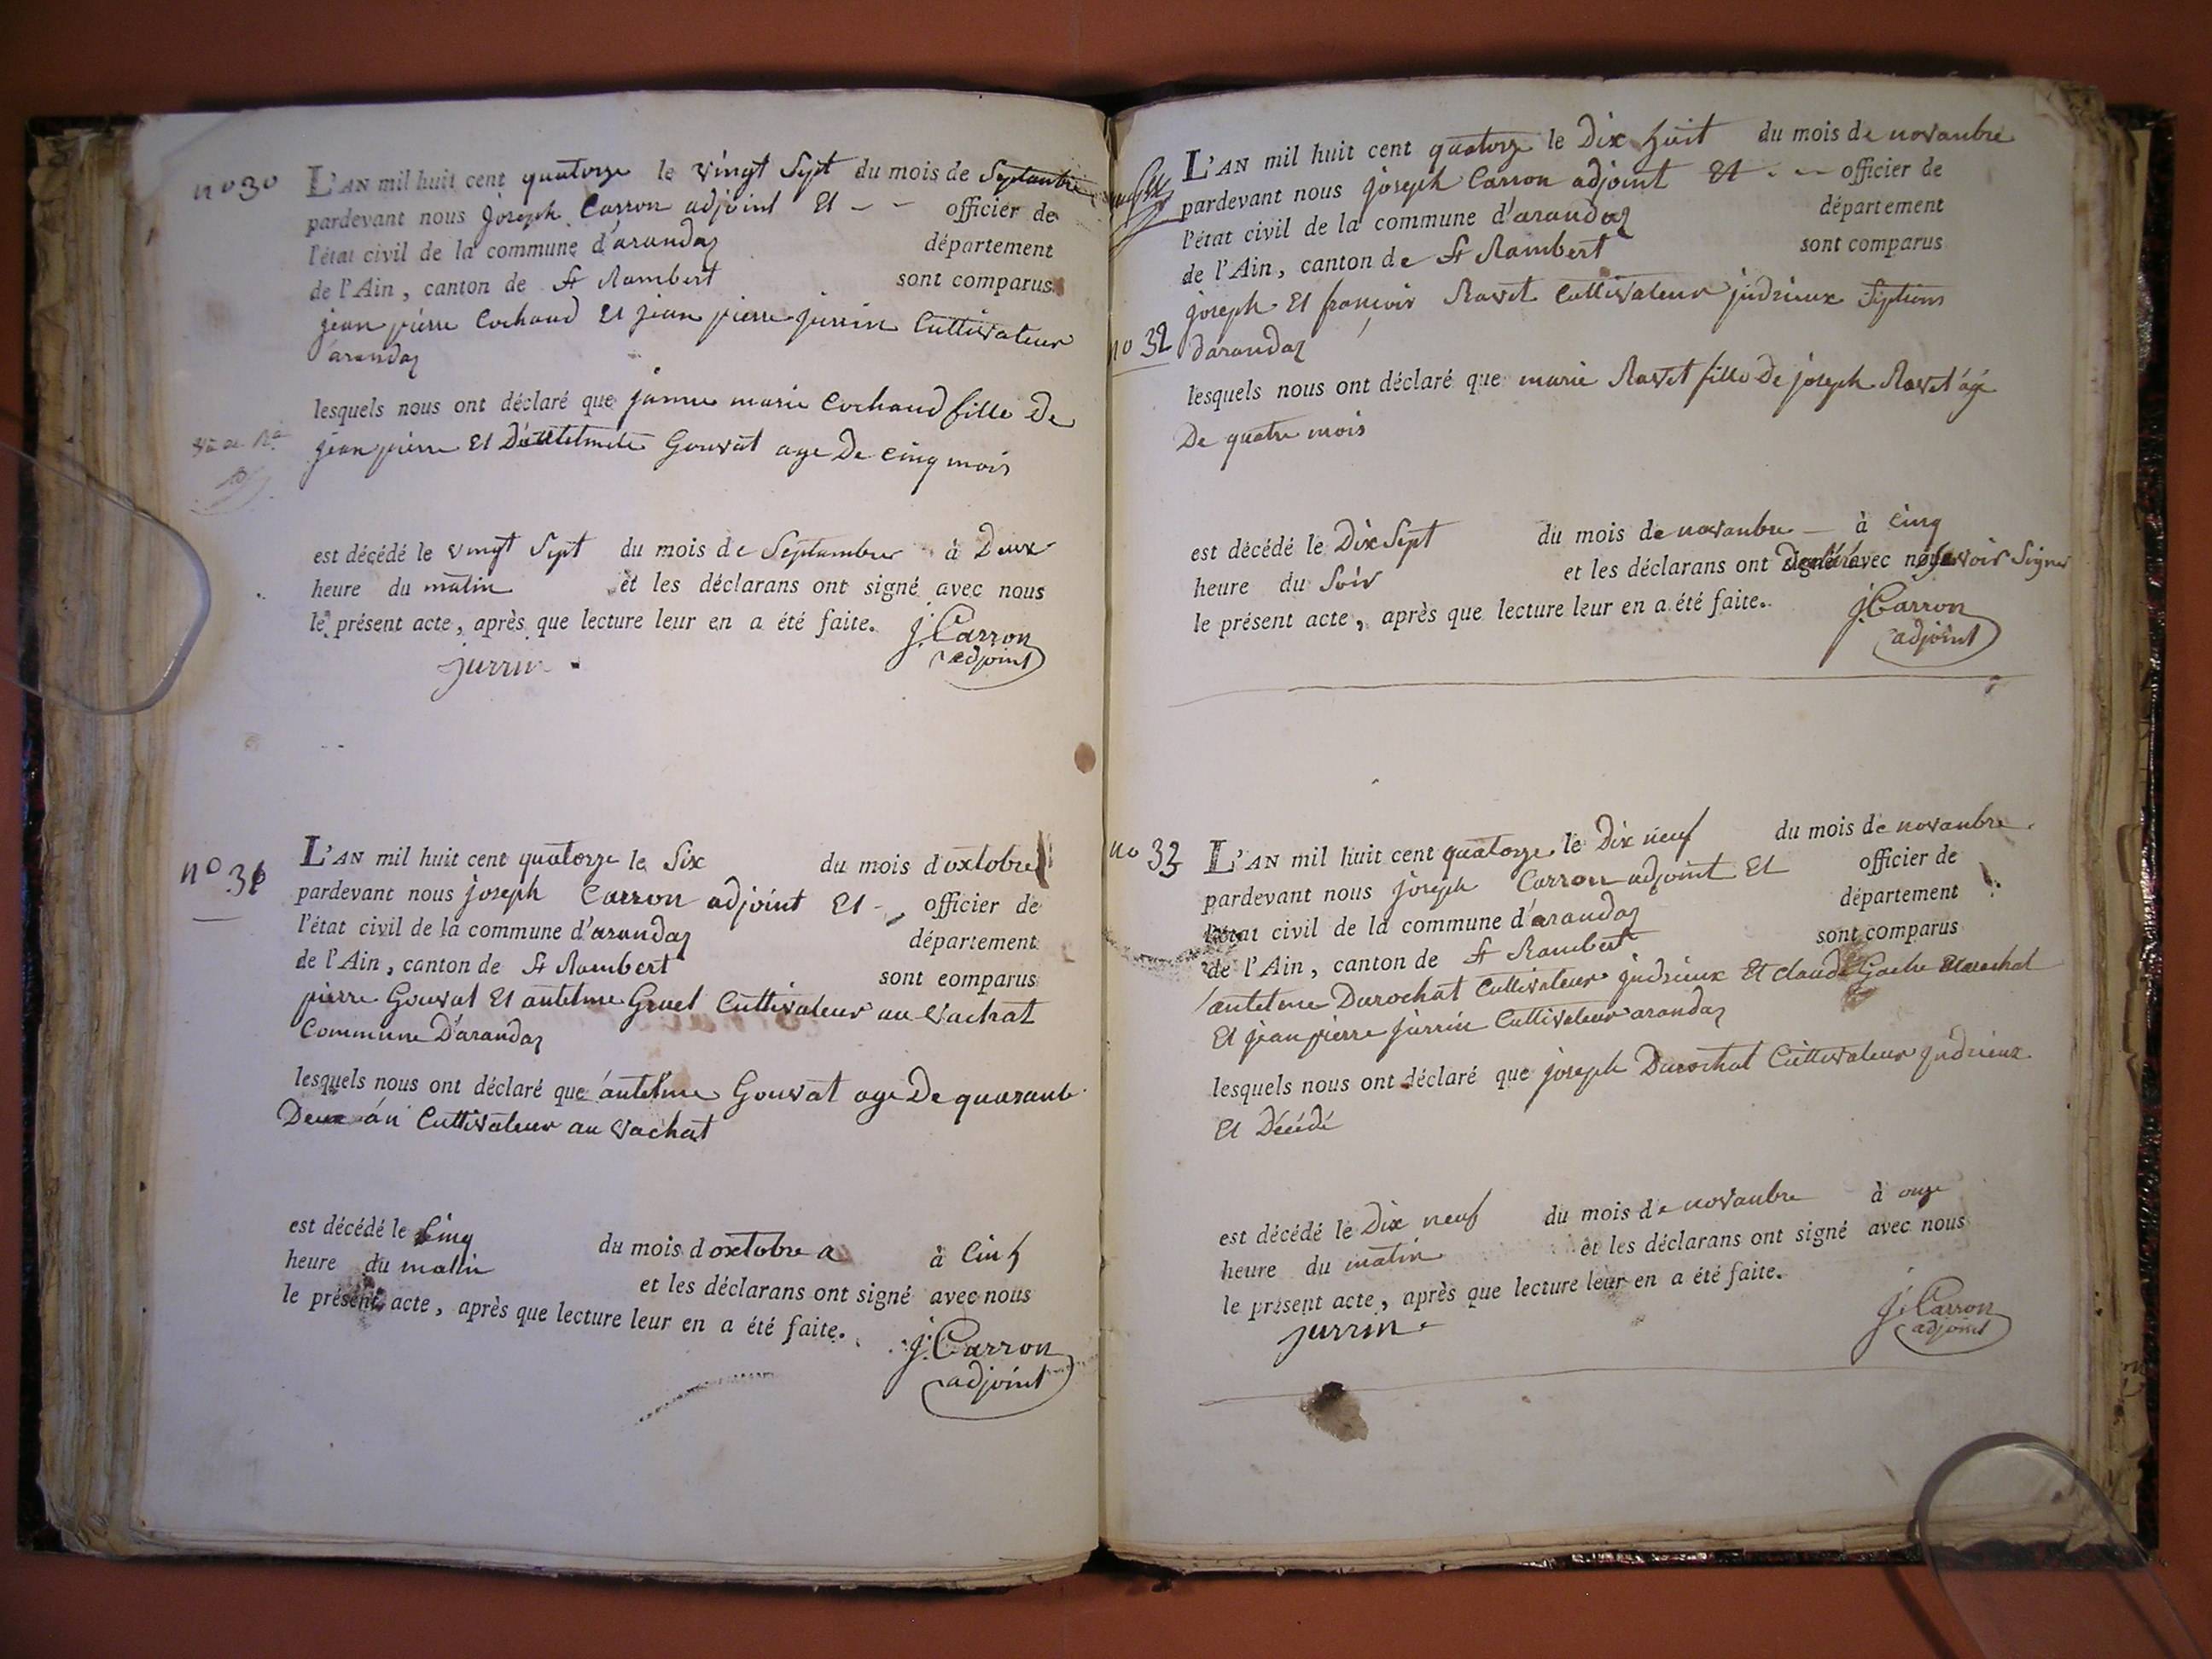 n° 30
L'AN mil huit cent quatorze le vingt Sept du mois de Septanbre
pardevant nous joseph Carron adjoint Et - - officier de
l'état civil de la commune d'arandaz département
de l'Ain, canton de St Rambert sont comparus
jean pierre Cochaud Et jean pierre jurrin Cultivateur
arandaz
lesquels nous ont déclaré que janne marie Cochaud fille de
jean pierre Et Gouvat age De cinq mois
est décédé le vingt Sept du mois de Septambre à Deux
heure du matin et les déclarans ont signé avec nous
le présent acte, après que lecture leur en a été faite.
j. Carron
adjoint
jurrin
n° 31
L'AN mil huit cent quatorze le Six du mois d'oxtobre
pardevant nous joseph Carron adjoint Et - officier de
l'état civil de la commune d'arandaz département
de l'Ain, canton de St Rambert sont comparus
pierre Gouvat Et antelme Gruel Cultivateur au vachat
Commune D'arandaz
lesquels nous ont déclaré que antelme Gouvat age De quarante
Deux an Cultivateur au vachat
est décédé le Cinq du mois d'oxtobre a à Cink
heure du matin et les déclarans ont signé avec nous
le présent acte, après que lecture leur en a été faite.
j. Carron
adjoint
L'AN mil huit cent quatorze le Dix huit du mois de novanbre
pardevant nous joseph Carron adjoint Et - - officier de
l'état civil de la commune d'arandaz département
de l'Ain, canton de St Rambert sont comparus
joseph Et francois Ravet Cultivateur judrieux
no 32
darandaz
lesquels nous ont déclaré que marie Ravet fille De joseph Ravet agé
De quatre mois
est décédé le Dix Sept du mois de novanbre à cinq
heure du Soir et les déclarans ont avec savoir Signer
le présent acte, après que lecture leur en a été faite.
j. Carron
adjoint
no 33
L'AN mil huit cent quatorze le Dix neuf du mois de novanbre
pardevant nous joseph Carron adjoint Et officier de
l'état civil de la commune d'arandaz département
de l'Ain, canton de St Rambert sont comparus
antelme Durochat Cultivateur judrieux Et claude Marechal
Et jean pierre jurrin Cultivateur arandaz
lesquels nous ont déclaré que joseph Durochat Cultivateur judrieux
Et Décédé
est décédé le Dix neuf du mois de novanbre à onze
heure du matin et les déclarans ont signé avec nous
le présent acte, après que lecture leur en a été faite.
jurrin
j. Carron
adjoint